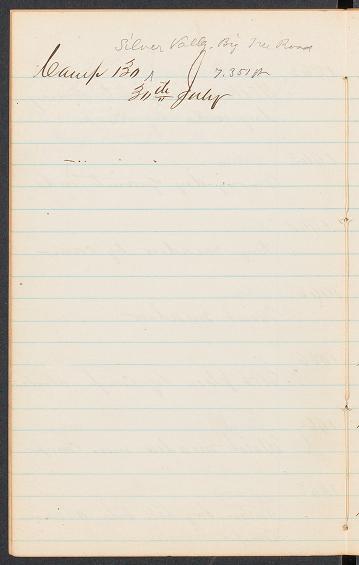 Silver Valley. Big Tree Road
Camp 130 7.351 ft
30th July